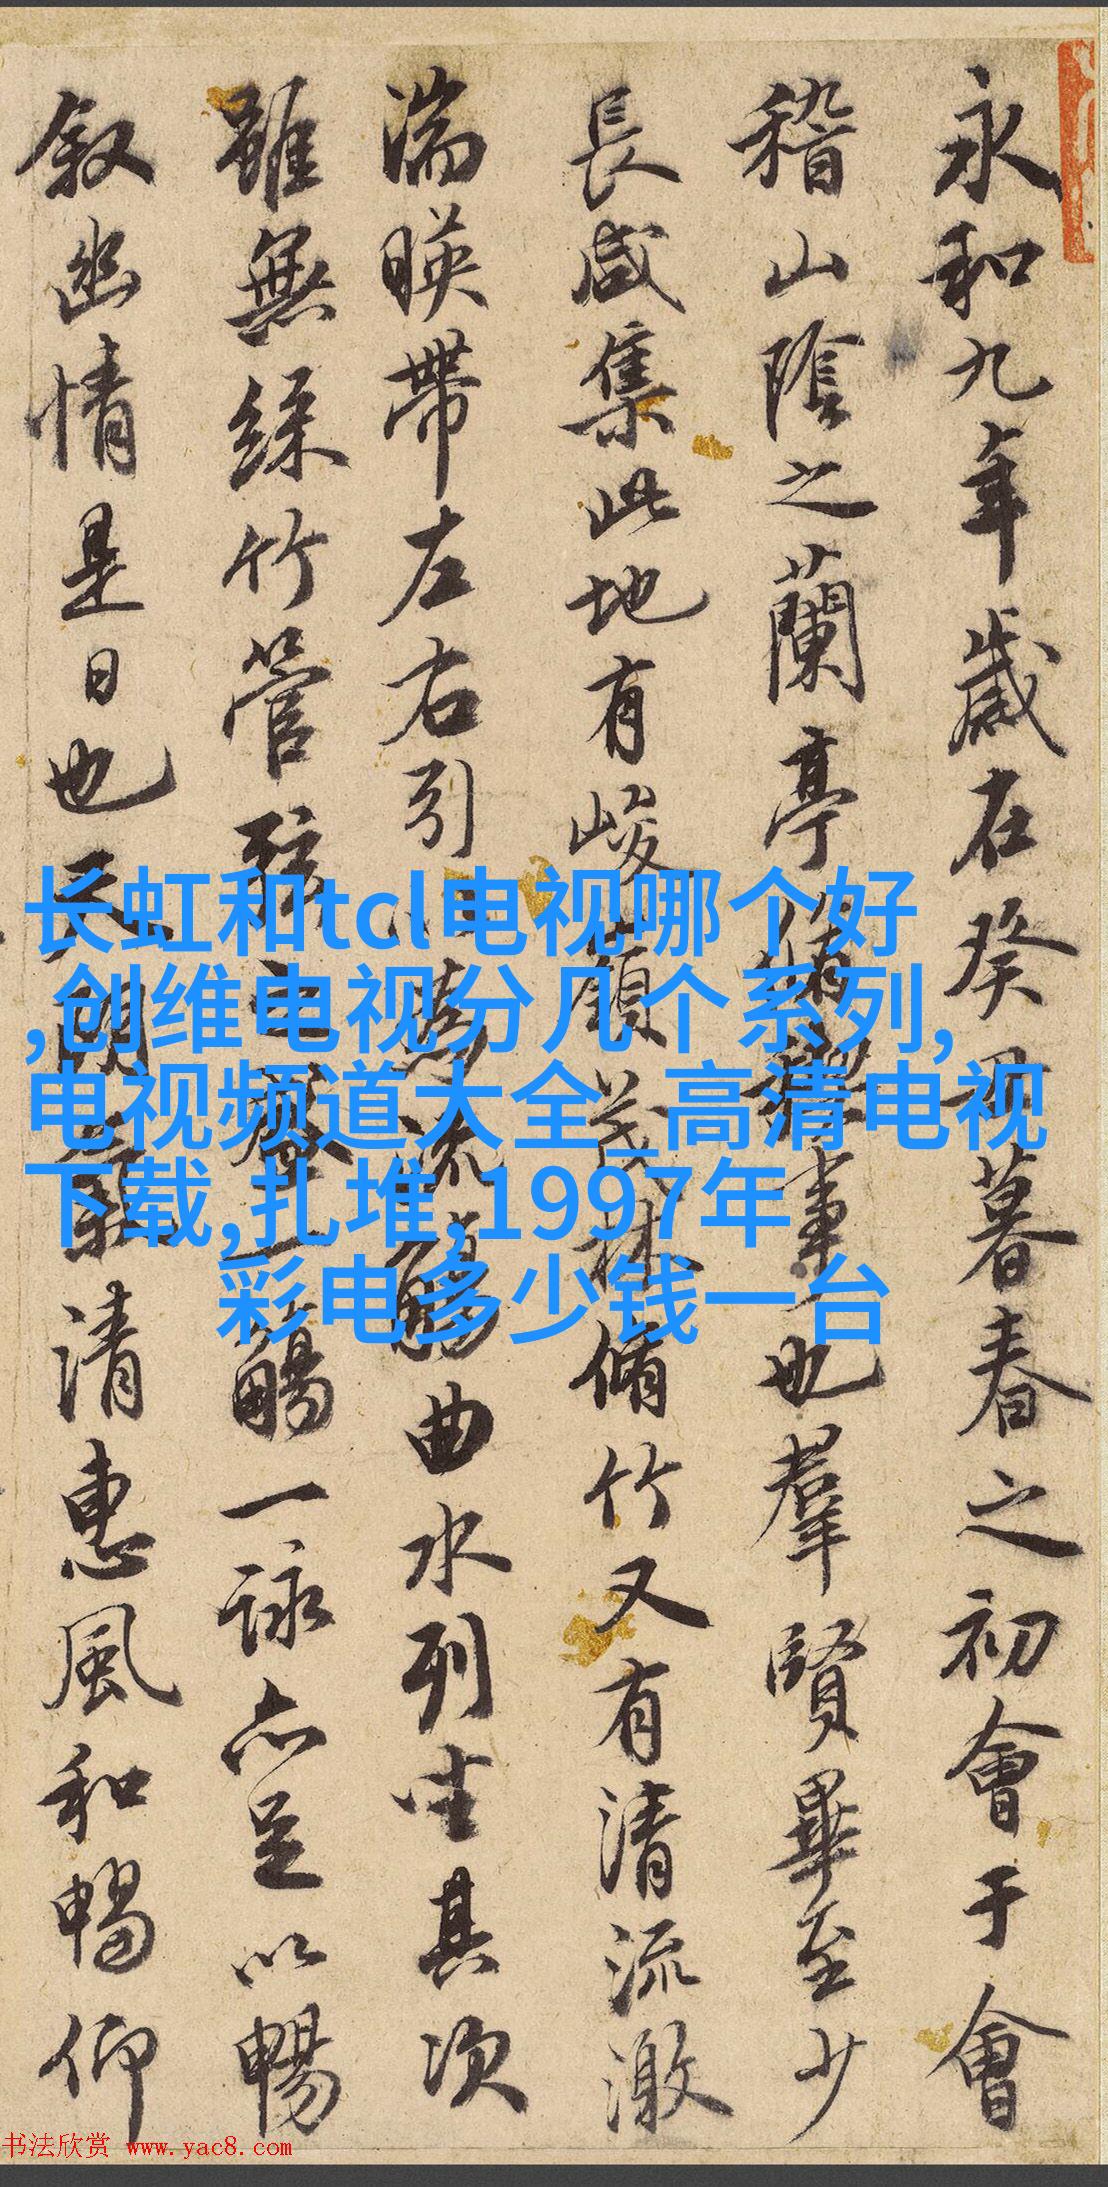 永和九年歲在癸丑暮春之初會于會
稽山陰之蘭亭脩禊事也羣賢畢至少
長咸集此地有峻領茂林脩竹又有清流激
湍暎帶左右引以為流觴曲水列坐其次
雖無絲竹管弦之盛一觴一詠亦足以暢
叙幽情是日也天朗氣清惠風和暢仰
长虹和tcl电视哪个好
,创维电视分几个系列,
电视频道大全_高清电视
下载,扎堆,1997年
彩电多少钱一台
书法欣赏 www.yac8.com